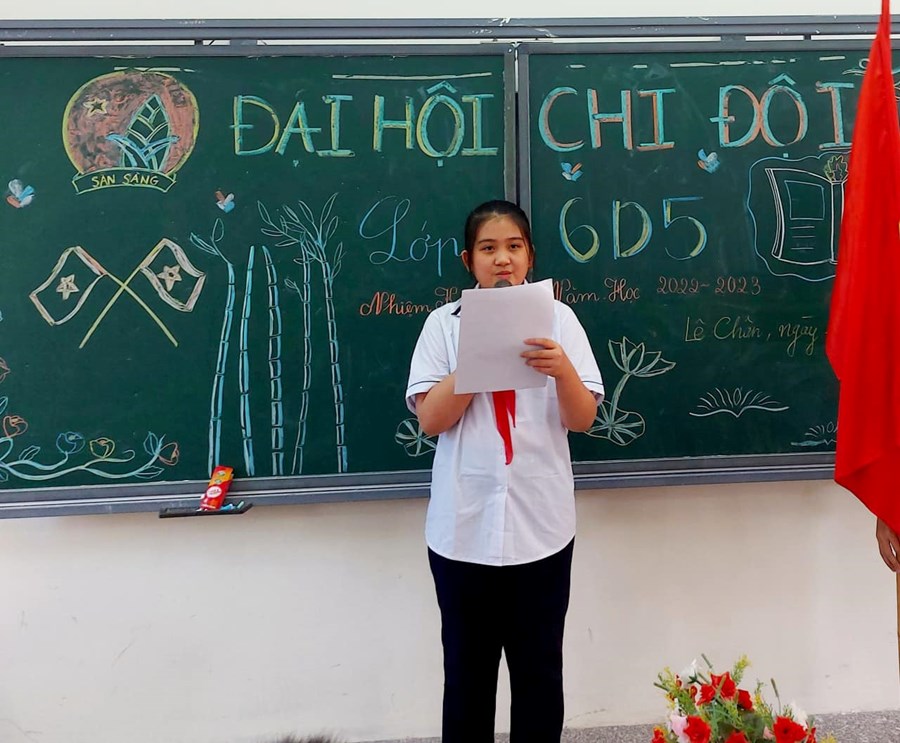 ĐẠI HỘI CHI ĐỘI
SẴN SÀNG
Lớp 6D5
Nhiệm Năm Học 2022-2023
Lê Chân, ngày